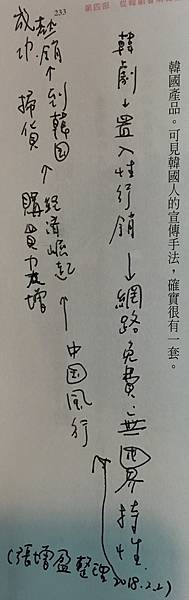 第四部　從韓劇看韓
233
韓國產品。可見韓國人的宣傳手法，確實很有一套。
韓劇↓置入性行銷↓網路免費、無国界特性
中国風行
↑經濟崛起↑購買力大增
趁銷↑到韓国掃貨
成功
(張增盈整理2018.2.2)